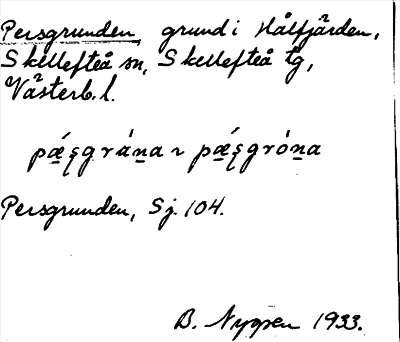 Persgrunden, grund i Hålfjärden,
Skellefteå sn, Skellefteå tg,
Västerb. l.
pǽşgrána ~ pǽşgróna
Persgrunden, Sj. 104.
B. Nygren 1933.